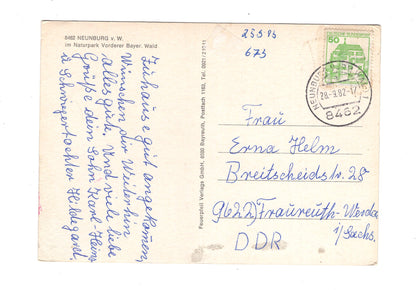 8462 NEUNBURG v. W.
im Naturpark Vorderer Bayer. Wald
Zuhaus e gut angekommen,
Wünschen dir Weiterhin
alles gute. Und viele liebe
Grüße dein Sohn Karl-Heinz
u Schwiegertochter Hildegard
Feuerpfeil Verlags GmbH, 8580 Bayreuth, Postfach 1180, Tel. 0921/21011
25585
675
50
DEUTSCHE BUNDESPOST
NEUNBURG
28.-9.82-17
8462
Frau
Erna Helm
Breitscheidstr. 28
9622) Fraureuth-Werdau
i/Sachs.
DDR